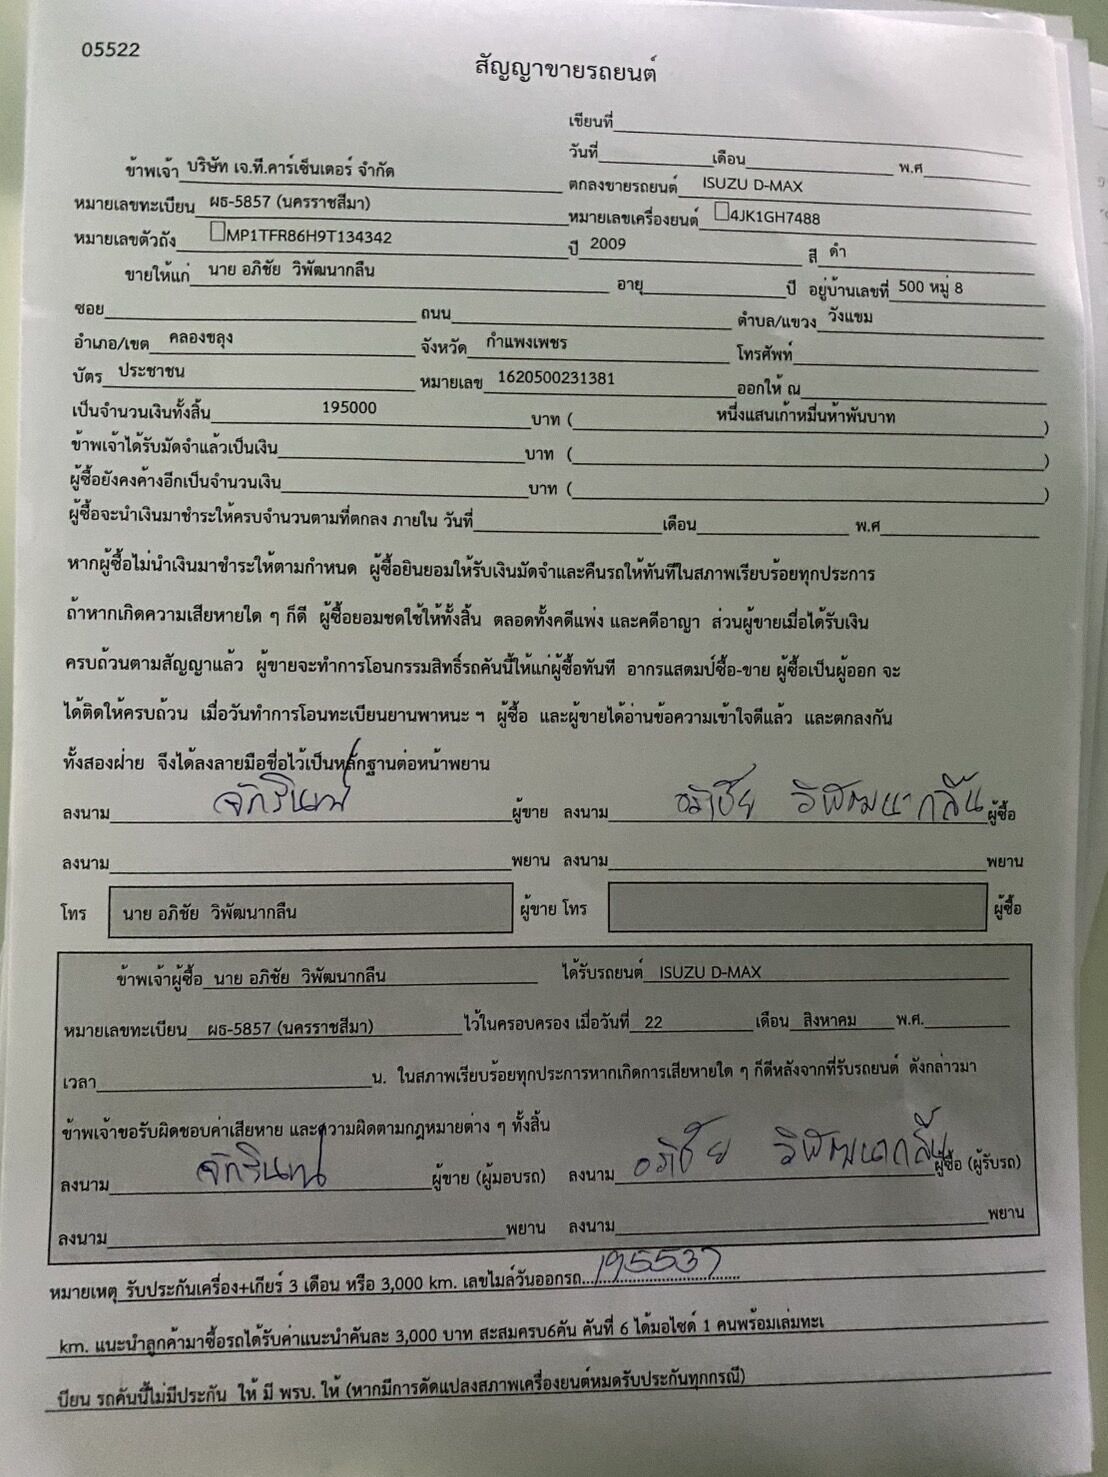 05522
สัญญาขายรถยนต์
เขียนที่
วันที่ เดือน พ.ศ
ข้าพเจ้า บริษัท เจ.ที.คาร์เซ็นเตอร์ จำกัด ตกลงขายรถยนต์ ISUZU D-MAX
หมายเลขทะเบียน ผธ-5857 (นครราชสีมา) หมายเลขเครื่องยนต์ 4JK1GH7488
หมายเลขตัวถัง MP1TFR86H9T134342 ปี 2009 สี ดำ
ขายให้แก่ นาย อภิชัย วิพัฒนากลืน อายุ ปี อยู่บ้านเลขที่ 500 หมู่ 8
ซอย ถนน ตำบล/แขวง วังแขม
อำเภอ/เขต คลองขลุง จังหวัด กำแพงเพชร โทรศัพท์
บัตร ประชาชน หมายเลข 1620500231381 ออกให้ ณ
เป็นจำนวนเงินทั้งสิ้น 195000 บาท ( หนึ่งแสนเก้าหมื่นห้าพันบาท )
ข้าพเจ้าได้รับมัดจำแล้วเป็นเงิน บาท ( )
ผู้ซื้อยังคงค้างอีกเป็นจำนวนเงิน บาท ( )
ผู้ซื้อจะนำเงินมาชำระให้ครบจำนวนตามที่ตกลง ภายใน วันที่ เดือน พ.ศ
หากผู้ซื้อไม่นำเงินมาชำระให้ตามกำหนด ผู้ซื้อยินยอมให้รับเงินมัดจำและคืนรถให้ทันทีในสภาพเรียบร้อยทุกประการ
ถ้าหากเกิดความเสียหายใด ๆ ก็ดี ผู้ซื้อยอมชดใช้ให้ทั้งสิ้น ตลอดทั้งคดีแพ่ง และคดีอาญา ส่วนผู้ขายเมื่อได้รับเงิน
ครบถ้วนตามสัญญาแล้ว ผู้ขายจะทำการโอนกรรมสิทธิ์รถคันนี้ให้แก่ผู้ซื้อทันที อากรแสตมป์ซื้อ-ขาย ผู้ซื้อเป็นผู้ออก จะ
ได้ติดให้ครบถ้วน เมื่อวันทำการโอนทะเบียนยานพาหนะ ฯ ผู้ซื้อ และผู้ขายได้อ่านข้อความเข้าใจดีแล้ว และตกลงกัน
ทั้งสองฝ่าย จึงได้ลงลายมือชื่อไว้เป็นหลักฐานต่อหน้าพยาน
ลงนาม จักรินทร์ ผู้ขาย ลงนาม อภิชัย วิพัฒนากลืน ผู้ซื้อ
ลงนาม พยาน ลงนาม พยาน
โทร นาย อภิชัย วิพัฒนากลืน ผู้ขาย โทร ผู้ซื้อ
ข้าพเจ้าผู้ซื้อ นาย อภิชัย วิพัฒนากลืน ได้รับรถยนต์ ISUZU D-MAX
หมายเลขทะเบียน ผธ-5857 (นครราชสีมา) ไว้ในครอบครอง เมื่อวันที่ 22 เดือน สิงหาคม พ.ศ.
เวลา น. ในสภาพเรียบร้อยทุกประการหากเกิดการเสียหายใด ๆ ก็ดีหลังจากที่รับรถยนต์ ดังกล่าวมา
ข้าพเจ้าขอรับผิดชอบค่าเสียหาย และความผิดตามกฎหมายต่าง ๆ ทั้งสิ้น
ลงนาม จักรินทร์ ผู้ขาย (ผู้มอบรถ) ลงนาม อภิชัย วิพัฒนากลืน ผู้ซื้อ (ผู้รับรถ)
ลงนาม พยาน ลงนาม พยาน
หมายเหตุ รับประกันเครื่อง+เกียร์ 3 เดือน หรือ 3,000 km. เลขไมล์วันออกรถ 195537
km. แนะนำลูกค้ามาซื้อรถได้รับค่าแนะนำคันละ 3,000 บาท สะสมครบ6คัน คันที่ 6 ได้มอไซด์ 1 คนพร้อมเล่มทะเ
บียน รถคันนี้ไม่มีประกัน ให้ มี พรบ. ให้ (หากมีการดัดแปลงสภาพเครื่องยนต์หมดรับประกันทุกกรณี)